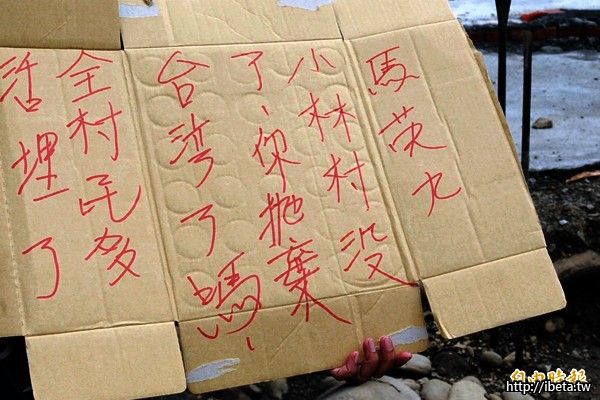 馬英九
小林村没
了、你抛棄
台湾了嗎、
全村民多
活埋了
自由時報
http://ibeta.tw/